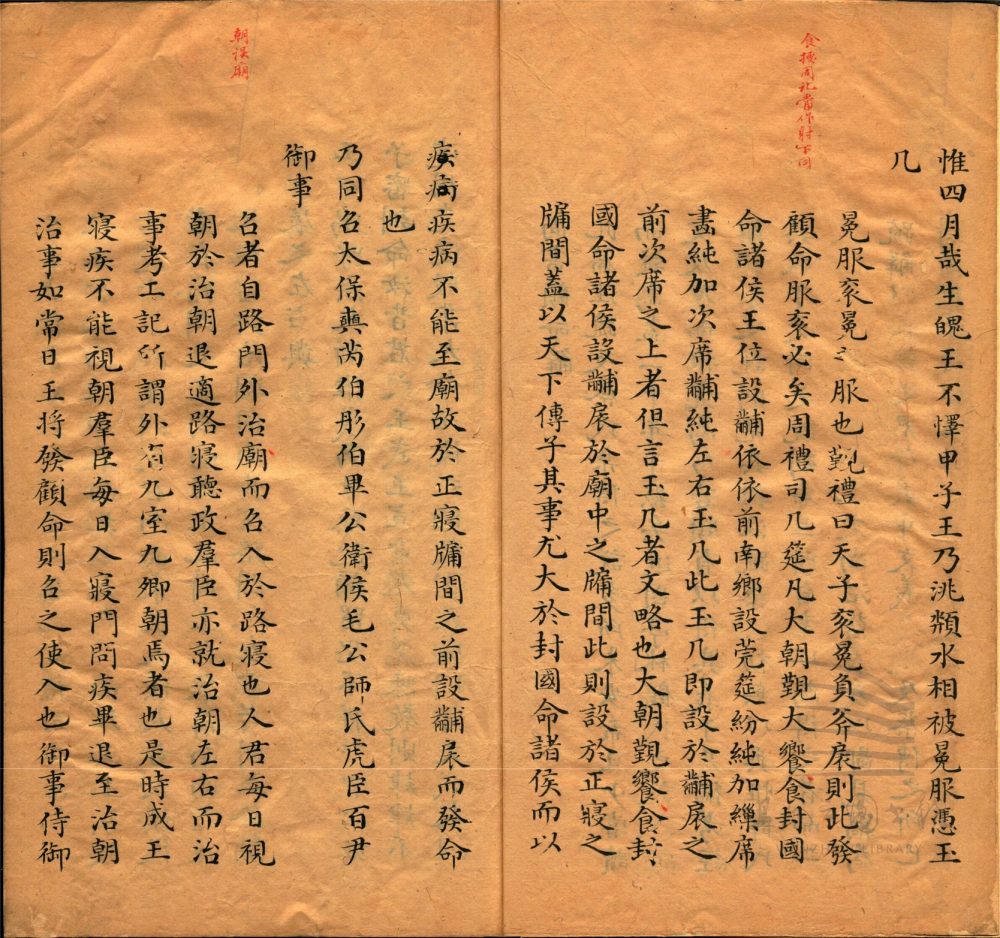 食據周礼當作射下同
惟四月哉生魄王不懌甲子王乃洮頮水相被冕服憑玉
几
冕服衮冕之服也覲禮曰天子衮冕負斧扆則此發
顧命服衮必矣周禮司几筵凡大朝覲大饗食封國
命諸侯王位設黼依依前南鄉設莞筵紛純加繅席
畫純加次席黼純左右玉几此玉几即設於黼扆之
前次席之上者但言玉几者文略也大朝覲饗食封
國命諸侯設黼扆於廟中之牖間此則設於正寢之
牖間蓋以天下傳子其事尤大於封國命諸侯而以
朝誤廟
疾病疾病不能至廟故於正寢牖間之前設黼扆而發命
也
乃同召太保奭芮伯彤伯畢公衛侯毛公師氏虎臣百尹
御事
召者自路門外治廟而召入於路寢也人君每日視
朝於治朝退適路寢聽政羣臣亦就治朝左右而治
事考工記所謂外有九室九卿朝焉者也是時成王
寢疾不能視朝羣臣每日入寢門問疾畢退至治朝
治事如常日王將發顧命則召之使入也御事侍御
LIBRARY